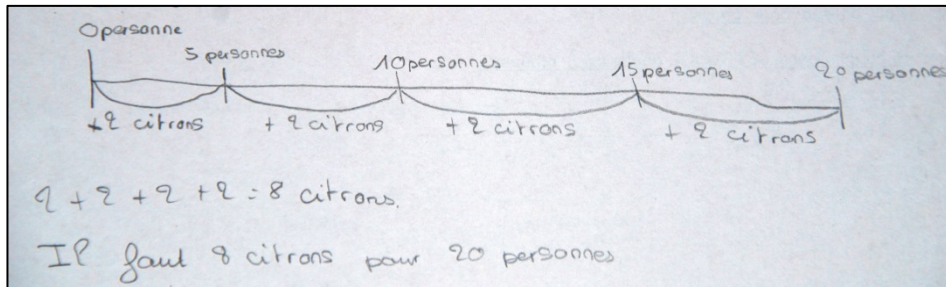 0 personne
5 personnes
10 personnes
15 personnes
20 personnes
+2 citrons
+ 2 citrons
+ 2 citrons
+ 2 citrons
2 + 2 + 2 + 2 = 8 citrons.
Il faut 8 citrons pour 20 personnes